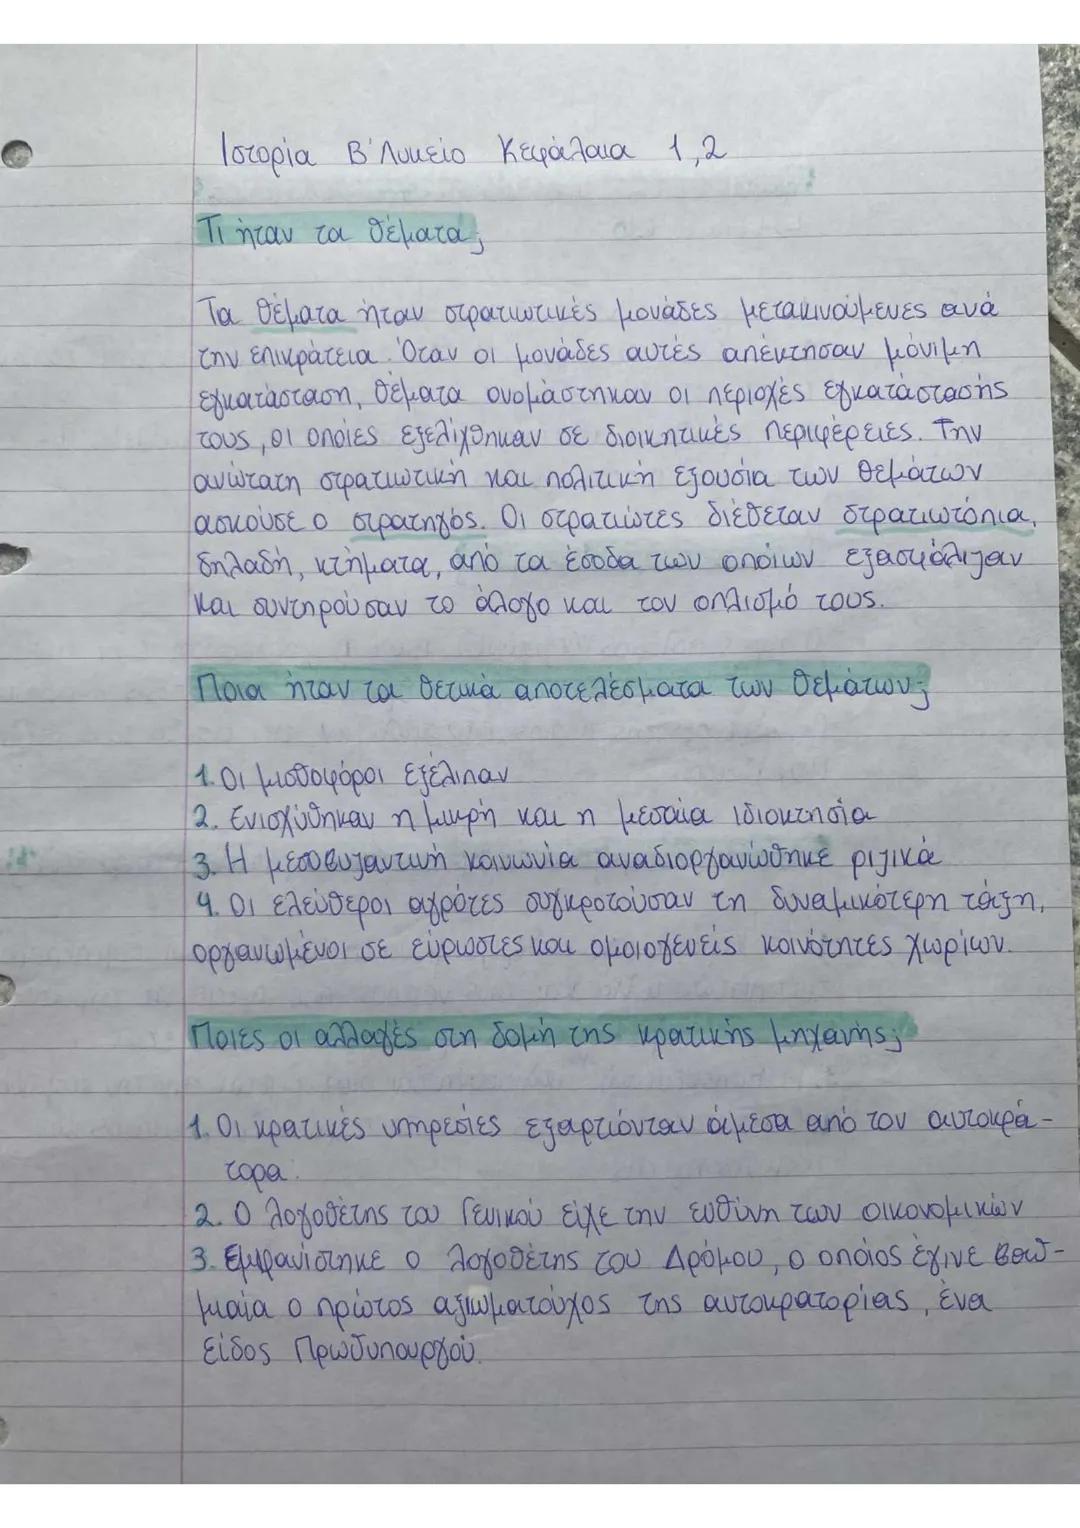 Ιστορία Β' Λυκείο Κεφάλαια 1,2
Τι ήταν τα θέματα;
Τα θέματα ήταν στρατιωτικές μονάδες μετακινούμενες ανά
την επικράτεια. Όταν οι μονάδες αυτές απέκτησαν μόνιμη
εγκατάσταση, θέματα ονομάστηκαν οι περιοχές εγκατάστασής
τους, οι οποίες εξελίχθηκαν σε διοικητικές περιφέρειες. Την
ανώτατη στρατιωτική και πολιτική εξουσία των θεμάτων
ασκούσε ο στρατηγός. Οι στρατιώτες διέθεταν στρατιωτόπια,
δηλαδή, κτήματα, από τα έσοδα των οποίων εξασφάλιζαν
και συντηρούσαν το άλογο και τον οπλισμό τους.
Ποια ήταν τα θετικά αποτελέσματα των θεμάτων;
1. Οι μισθοφόροι εξέλιπαν
2. Ενισχύθηκαν η μικρή και η μεσαία ιδιοκτησία
3. Η μεσοβυζαντινή κοινωνία αναδιοργανώθηκε ριζικά
4. Οι ελεύθεροι αγρότες συγκροτούσαν τη δυναμικότερη τάξη,
οργανωμένοι σε εύρωστες και ομοιογενείς κοινότητες χωρίων.
Ποιες οι αλλαγές στη δομή της κρατικής μηχανής;
1. Οι κρατικές υπηρεσίες εξαρτιόνταν άμεσα από τον αυτοκρά-
τορα.
2. Ο λογοθέτης του Γενικού είχε την ευθύνη των οικονομικών
3. Εμφανίστηκε ο λογοθέτης του Δρόμου, ο οποίος έγινε βαθ-
μιαία ο πρώτος αξιωματούχος της αυτοκρατορίας, ένα
είδος Πρωθυπουργού.